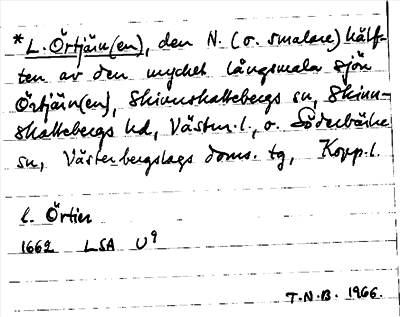 * L. Örtjärn(en), den N. (o. smalare) hälf-
ten av den mycket långsmala sjön
Örtjärn(en), Skinnskattebergs sn, Skinn-
skattebergs hd, Västm. l., o. Söderbärke
sn, Västerbergslags doms. tg, Kopp. l.
l. Örtien
1662 LSA U9
T.N.B. 1966.